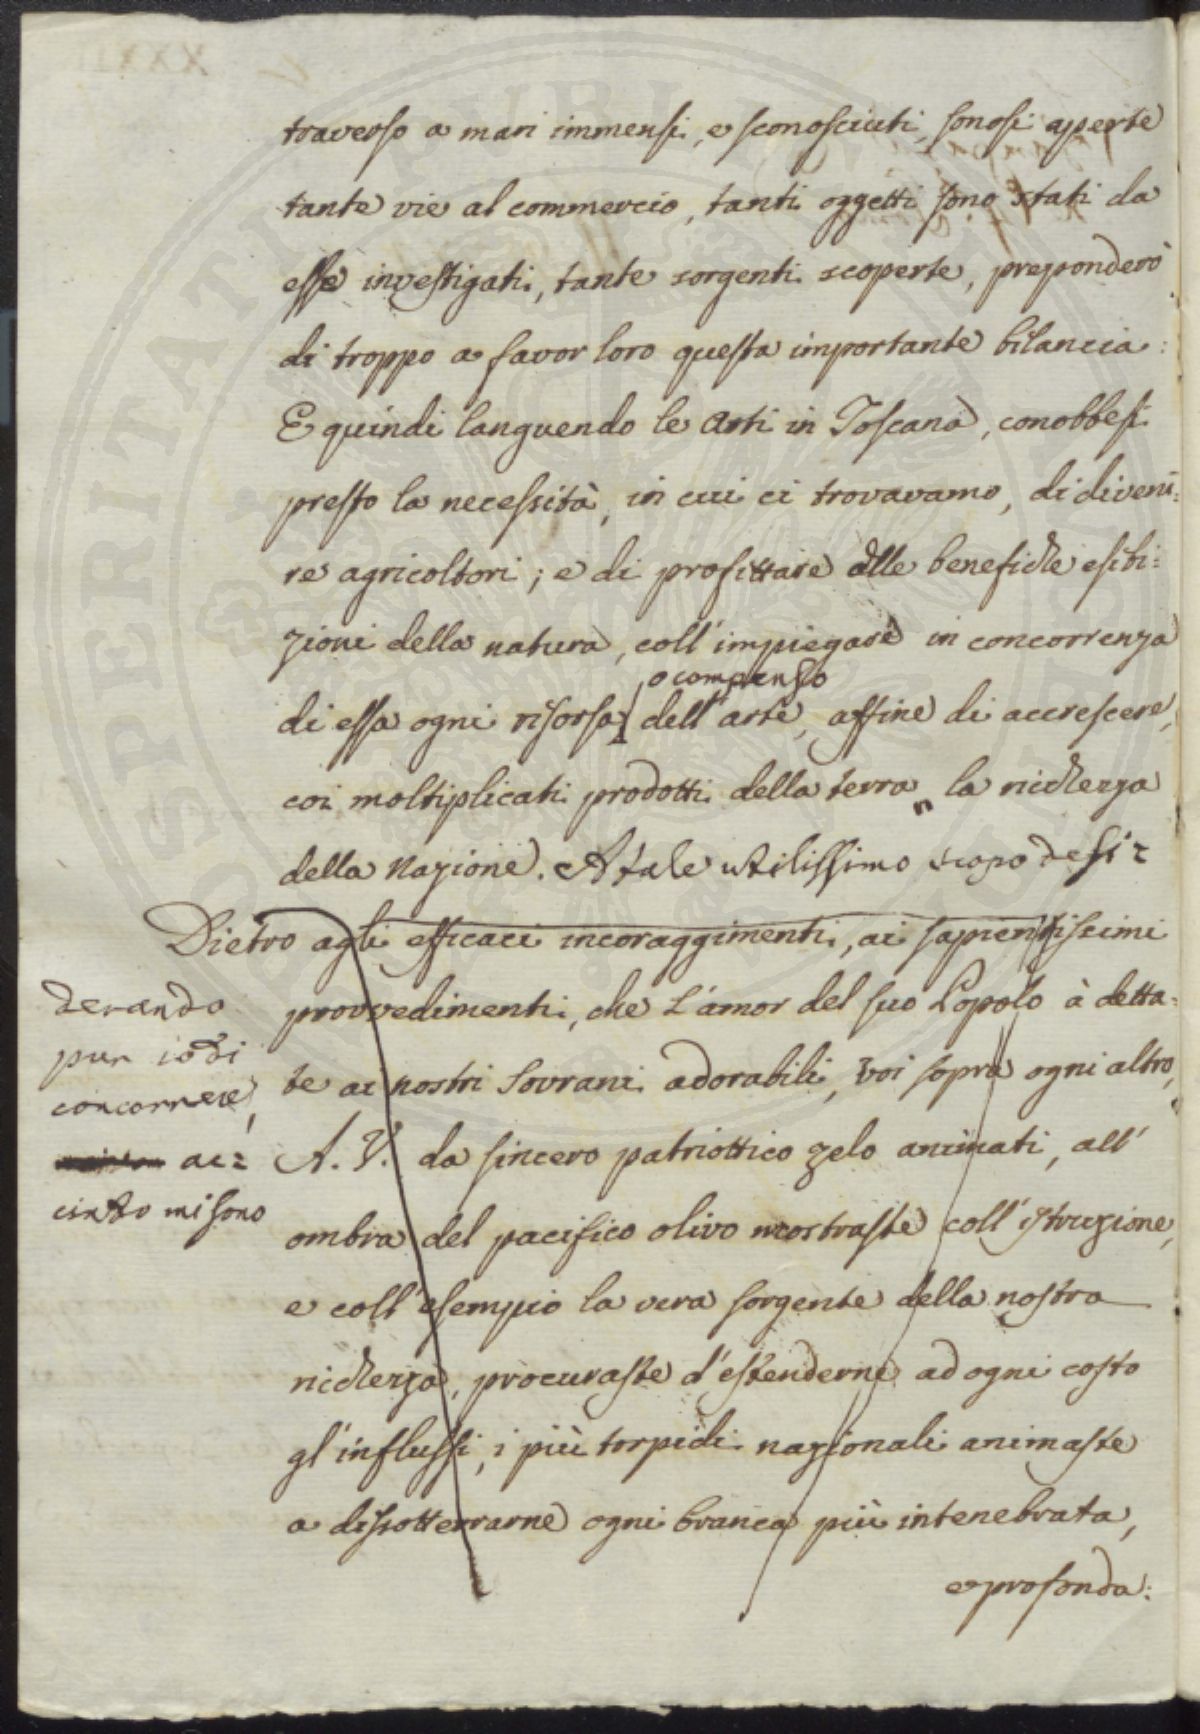 traverso a mari immensi, e sconosciuti, sonosi aperte
tante vie al commercio, tanti oggetti sono stati da
esse investigati, tante sorgenti scoperte, preponderò
di troppo a favor loro questa importante bilancia:
E quindi languendo le Arti in Toscana, conobbesi
presto la necessità, in cui ci trovavamo, di diveni=
re agricoltori; e di profittare delle benefiche esibi=
zioni della natura, coll'impiegare in concorrenza
o compenso
di essa ogni risorsa dell'arte, affine di accrescere,
coi moltiplicati prodotti della terra, la richezza
della Nazione. A tale utilissimo scopo desi=
Dietro agli efficaci incoraggimenti, ai sapientissimi
provvedimenti, che l'amor del suo Popolo à detta=
te ai nostri Sovrani adorabili, Voi sopra ogni altro,
A. V. da sincero patriottico zelo animati, all'
ombra del pacifico olivo mostraste coll'istruzione,
e coll'esempio la vera sorgente della nostra
richezza, procuraste d'estenderne ad ogni costo
gl'influssi, i più torpidi nazionali animaste
a dissotterrarne ogni branca più intenebrata,
e profonda:
derando
pur io di
concorrere,
ac=
cinto mi sono
PROSPERITATI PUBLICAE